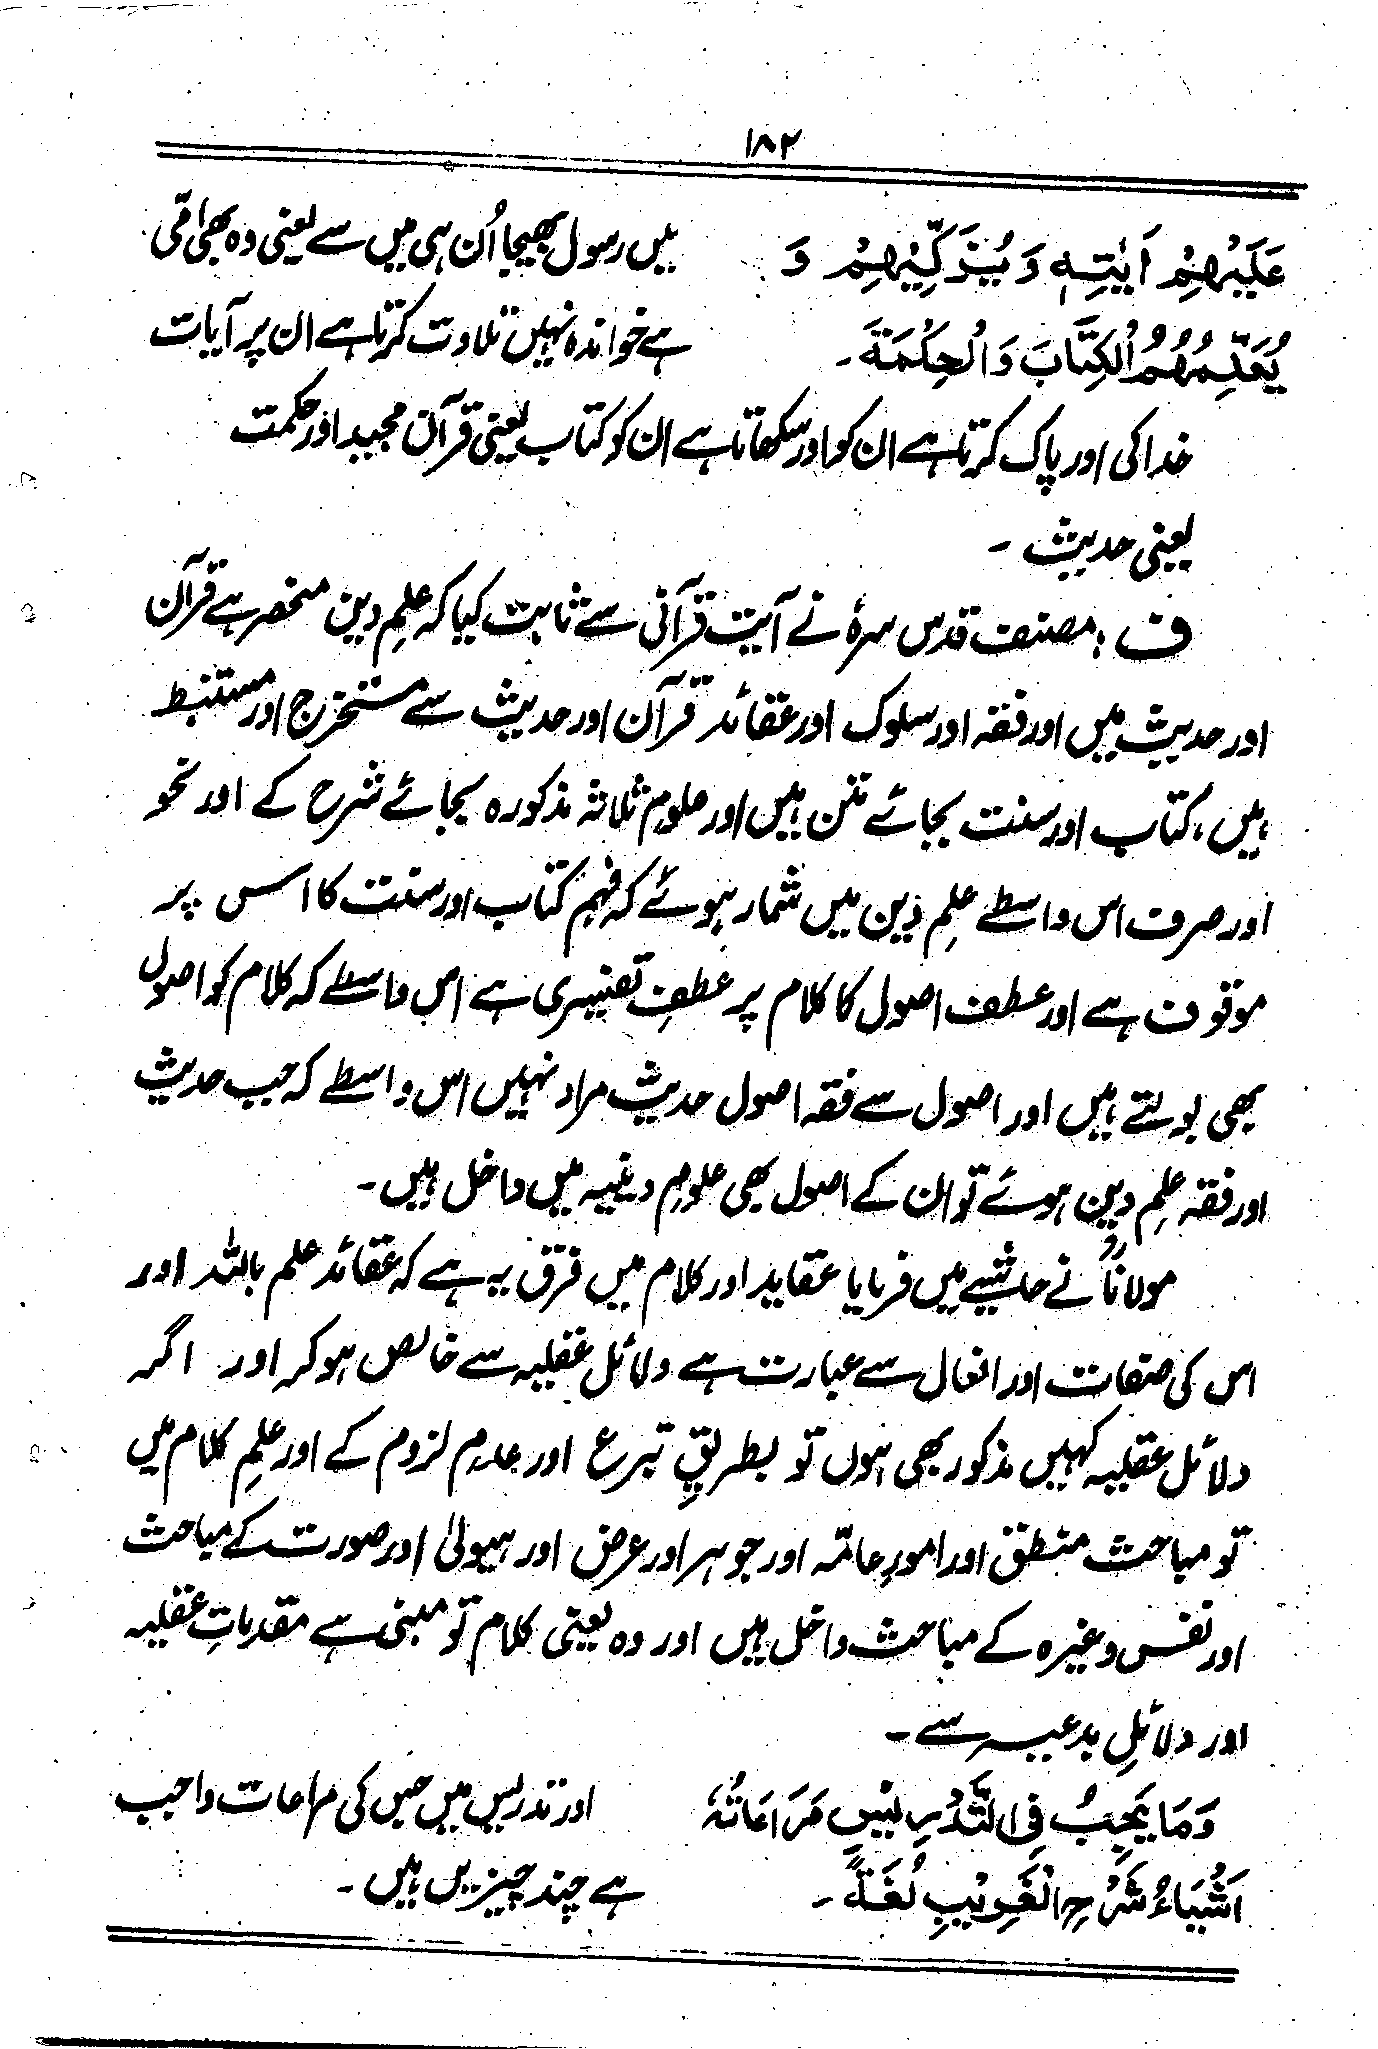 ۱۸۲
عَلَيْهِمْ اٰيٰتِهٖ وَيُزَكِّيْهِمْ وَ
يُعَلِّمُهُمُ الْكِتَابَ وَالْحِكْمَةَ ۔
میں رسول بھیجا اُن ہی میں سے یعنی وہ بھی امّی
ہے خواندہ نہیں تلاوت کرتا ہے ان پر آیات
خدا کی اور پاک کرتا ہے ان کو اور سکھاتا ہے ان کو کتاب یعنی قرآن مجید اور حکمت
یعنی حدیث ۔
ف : مصنف قدس سرہٗ نے آیت قرآنی سے ثابت کیا کہ علمِ دین منحصر ہے قرآن
اور حدیث میں اور فقہ اور سلوک اور عقائد قرآن اور حدیث سے مستخرج اور مستنبط
ہیں، کتاب اور سنت بجائے متن ہیں اور علومِ ثلاثہ مذکورہ بجائے شرح کے اور نحو
اور صرف اس واسطے علمِ دین میں شمار ہوئے کہ فہم کتاب اور سنت کا اس پر
موقوف ہے اور عطف اصول کا کلام پر عطفِ تفسیری ہے اس واسطے کہ کلام کو اصول
بھی بولتے ہیں اور اصول سے فقہ اصول حدیث مراد نہیں اس واسطے کہ جب حدیث
اور فقہ علمِ دین ہوئے تو ان کے اصول بھی علومِ دینیہ میں داخل ہیں۔
مولاناؒ نے حاشیے میں فرمایا عقاید اور کلام میں فرق یہ ہے کہ عقائد علم باللہ اور
اس کی صفات اور افعال سے عبارت ہے دلائل عقلیہ سے خالص ہو کر اور اگر
دلائل عقلیہ کہیں مذکور بھی ہوں تو بطریقِ تبرع اور عدمِ لزوم کے اور علمِ کلام میں
تو مباحث منطق اور امورِ عامّہ اور جوہر اور عرض اور ہیولیٰ اور صورت کے مباحث
اور نفس وغیرہ کے مباحث داخل ہیں اور وہ یعنی کلام تو مبنی ہے مقدماتِ عقلیہ
اور دلائلِ بدعیہ سے ۔
وَمَا يَجِبُ فِي التَّدْرِيْسِ مَرَاعَاتُهٗ
اَشْيَاءُ شَرْحِ الْغَرِيْبِ لُغَةً ۔
اور تدریس میں جس کی مراعات واجب
ہے چند چیزیں ہیں ۔